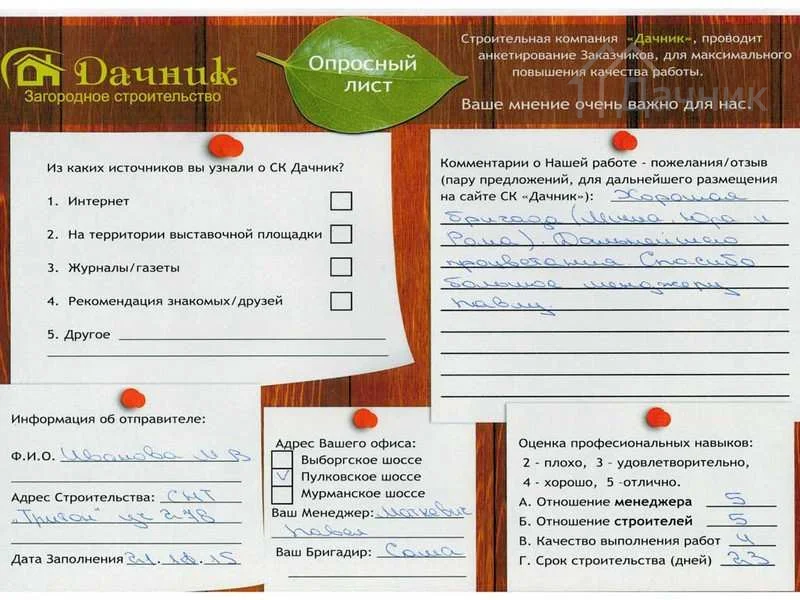 Дачник
Загородное строительство
Опросный
лист
Строительная компания «Дачник», проводит
анкетирование Заказчиков, для максимального
повышения качества работы.
Ваше мнение очень важно для нас.
Дачник
Из каких источников вы узнали о СК Дачник?
1. Интернет
2. На территории выставочной площадки
3. Журналы/газеты
4. Рекомендация знакомых/друзей
5. Другое
Комментарии о Нашей работе - пожелания/отзыв
(пару предложений, для дальнейшего размещения
на сайте СК «Дачник»): Хорошая
бригада (Миша, Юра и
Рома). Дальнейшего
процветания. Спасибо
большое менеджеру
Павлу.
Информация об отправителе:
Ф.И.О. Иванова М В
Адрес Строительства: СНТ
уч
Дата Заполнения
Адрес Вашего офиса:
Выборгское шоссе
Пулковское шоссе
Мурманское шоссе
Ваш Менеджер: Маткевич
Павел
Ваш Бригадир: Саша
Оценка професиональных навыков:
2 - плохо, 3 - удовлетворительно,
4 - хорошо, 5 -отлично.
А. Отношение менеджера 5
Б. Отношение строителей 5
В. Качество выполнения работ 4
Г. Срок строительства (дней) 23